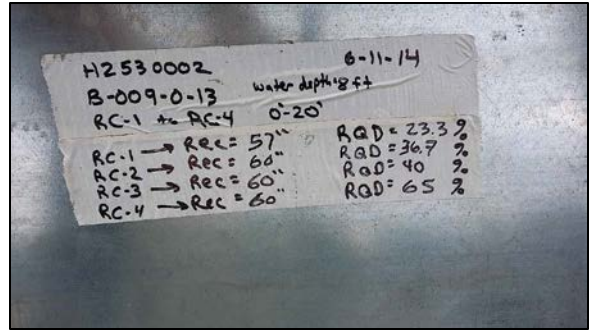 H2530002 6-11-14
B-009-0-13 water depth: 8 ft
RC-1 to RC-4 0'-20'
RC-1 → Rec = 57" RQD = 23.3 %
RC-2 → Rec = 60" RQD = 36.7 %
RC-3 → Rec = 60" RQD = 40 %
RC-4 → Rec = 60" RQD = 65 %